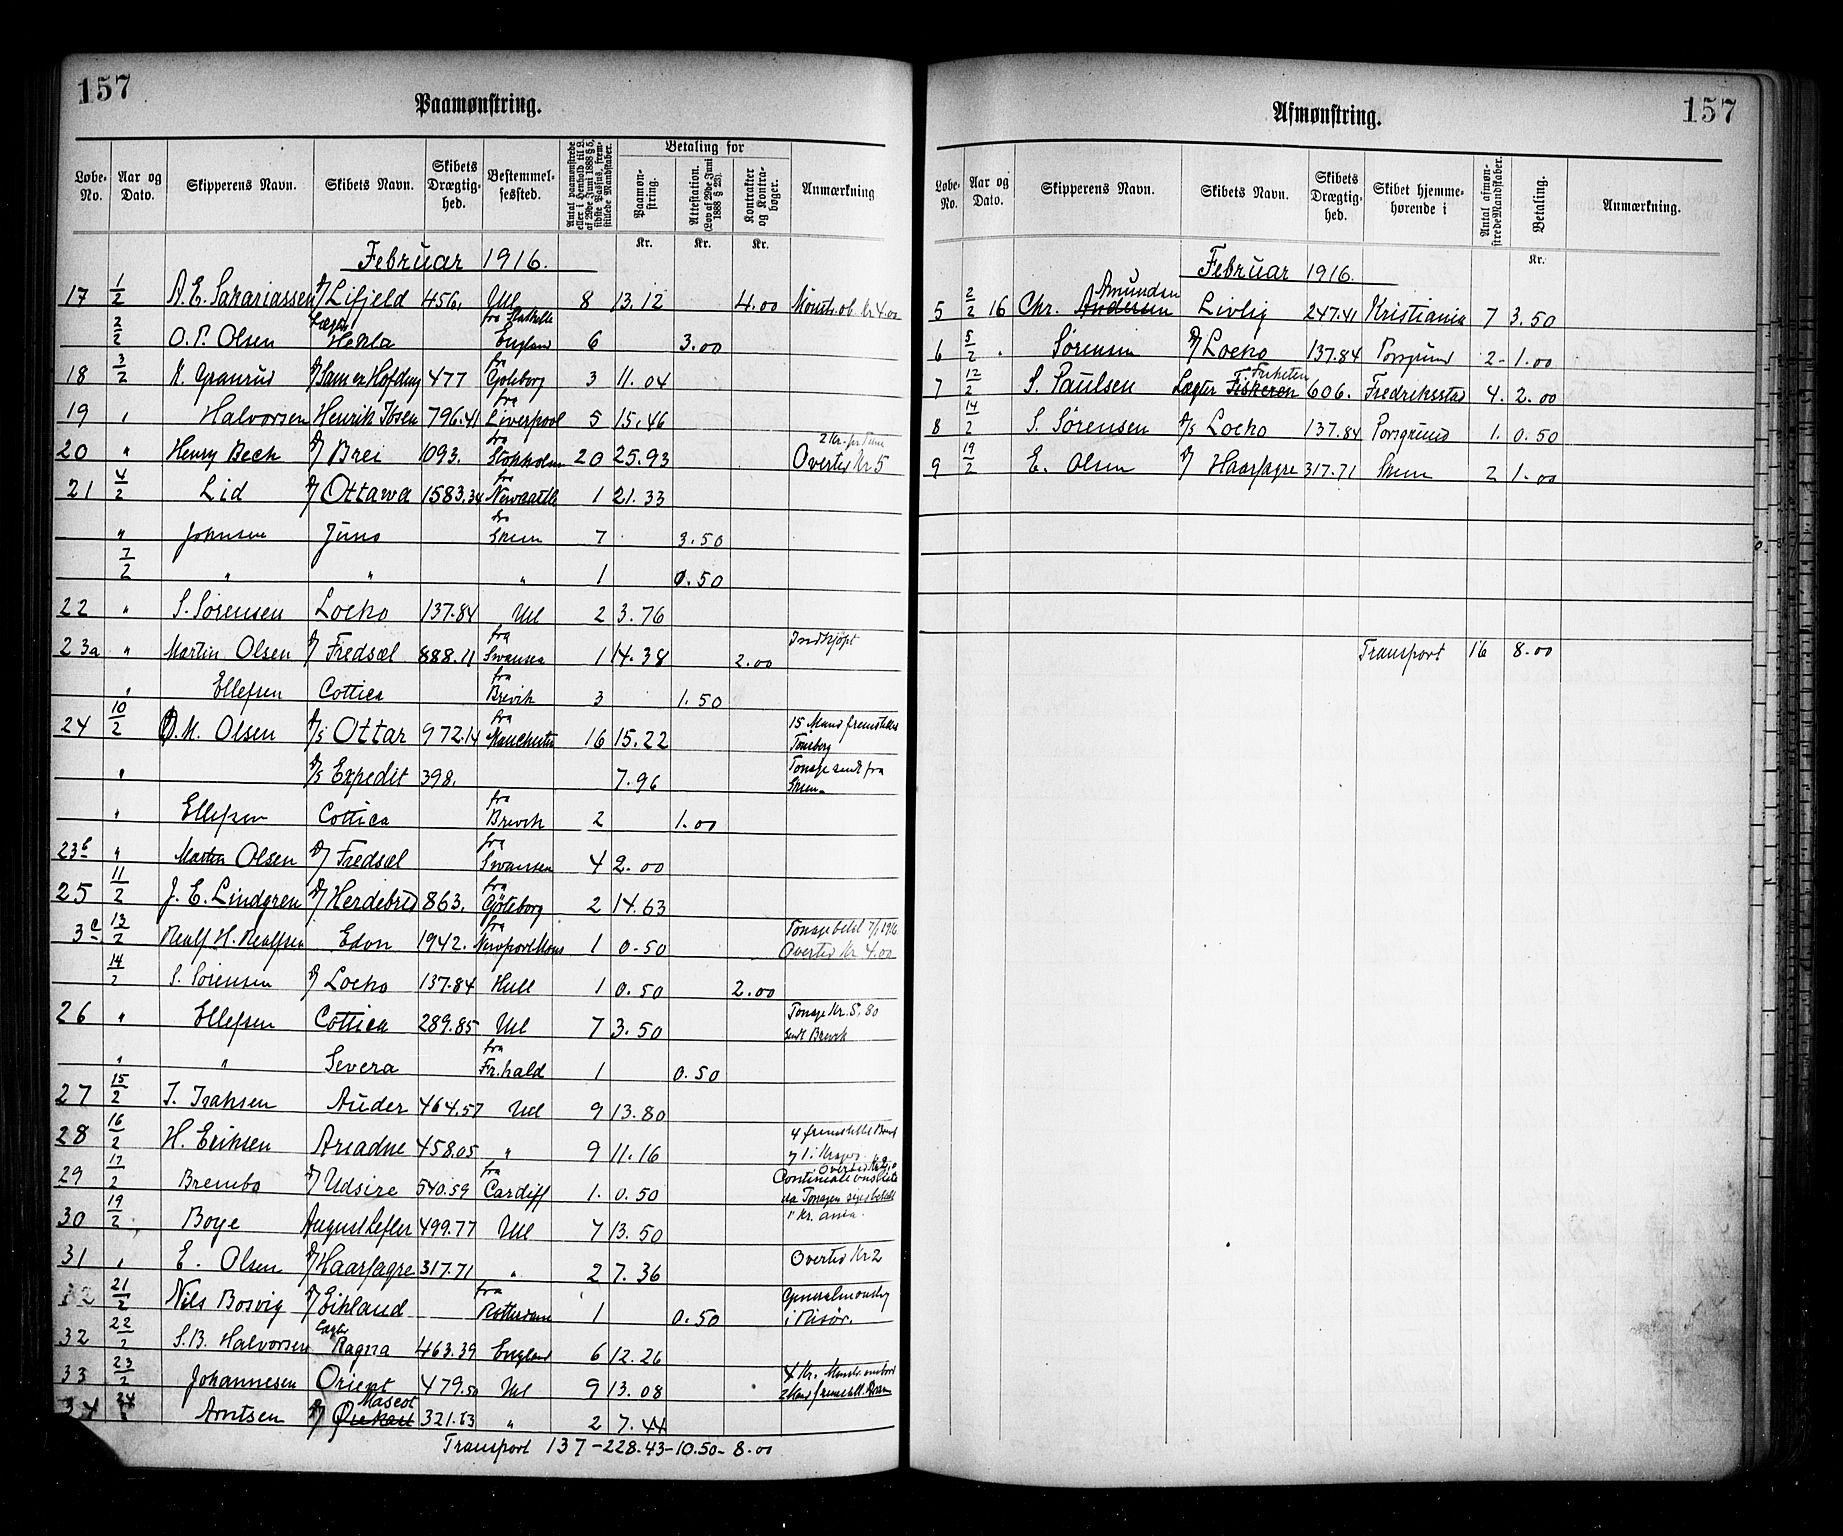 157
Paamønstring.
Løbe-No. Aar og Dato. Skipperens Navn. Skibets Navn. Skibets Drægtighed. Bestemmelsessted. Antal paamønstrede eller i Henhold til L. af 29de Juni 1888 § 5, sidste Passus, fremstillede Mandskaber. Betaling for Paamønstring. Attestation. (Lov af 29de Juni 1888 § 23). Kontrakter og Kontrabøger. Anmærkning
Kr. Kr. Kr.
Februar 1916.
17 1/2 A. E. Sakariassen D/ Lifjeld 456. Udl 8 13.12 4.00 Mønstr. ob. Kr 4.00
2/2 O. P. Olsen Lægter Hekla fra Stathelle England 6 3.00
18 3/2 N. Granrud D/ Sam ex Hofding 477 fra Goteborg 3 11.04
19 " Halvorsen Henrik Ibsen 796.41 fra Liverpool 5 15.46
20 " Henry Bech D/ Brei 1093. fra Stokholm 20 25.93 2 Kr. pr Time Overtid Kr 5
21 4/2 Lid D/ Ottawa 1583.34 fra Newcastle 1 21.33
" Johnsen Juno fra Skien 7 3.50
7/2 " " " 1 0.50
22 " S. Sørensen Locho 137.84 Udl 2 3.76
23a " Martin Olsen D/ Fredsæl 888.11 fra Swansea 1 14.38 2.00 Indkjøpt
" Ellefsen Cottica fra Brevik 3 1.50
24 10/2 O. M. Olsen D/S Ottar 972.14 fra Manchester 16 15.22 15 Mand fremstilles Tønsberg
" D/S Expedit 398. 7.96 Tonage sendt fra Skien
" Ellefsen Cottica fra Brevik 2 1.00
23b " Martin Olsen D/ Fredsæl fra Swansea 4 2.00
25 11/2 J. E. Lindgren D/ Herdebred 863. fra Göteborg 2 14.63
3c 13/2 Realf H. Realfsen Edon 1942. fra Newport Mons 1 0.50 Tonage betal 7/1 1916 Overtid Kr 4.00
14/2 S. Sørensen D/ Locho 137.84 Hull 1 0.50 2.00
26 " Ellefsen Cottica 289.85 Udl 7 3.50 Tonage Kr. 5,80 sendt Brevik
" " Severa fra Fr.hald 1 0.50
27 15/2 T. Isaksen Auder 464.57 Udl 9 13.80
28 16/2 H. Eriksen Ariadne 458.05 " 9 11.16 4 fremstillet Brevik
29 17/2 Brembo D/ Udsire 540.59 fra Cardiff 1. 0.50
30 19/2 Boye August Lefler 499.77 Udl 7 13.50
31 " E. Olsen D/ Haarfagre 317.71 " 2 7.36 Overtid Kr 2
21/2 Nils Bosvig D/ Eikland fra Rotterdam 1 0.50 Generalmønstr. i Risør.
32 22/2 S. B. Halvorsen Lægter Ragna 463.39 England 6 12.26
33 23/2 Johannesen Orient 479.50 Udl 9 13.08 4 Kr. Mønstr. ombord
34 24/2 Arntsen D/ Mascot 321.83 " 2 7.44
Transport 137-228.43-10.50-8.00
157
Afmønstring.
Løbe-No. Aar og Dato. Skipperens Navn. Skibets Navn. Skibets Drægtighed. Skibet hjemmehørende i Antal afmønstrede Mandskaber. Betaling. Anmærkning.
Kr.
Februar 1916.
5 2/2 16 Chr. Andersen Amundsen Livlig 247.41 Kristiania 7 3.50
6 5/2 " Sørensen D/ Locho 137.84 Porsgrund 2- 1.00
7 12/2 S. Paulsen Lægter Fiskeren Friheten 606. Fredriksstad 4. 2.00
8 14/2 S. Sørensen D/S Locho 137.84 Porsgrund 1. 0.50
9 19/2 E. Olsen D/ Haarfagre 317.71 Skien 2 1.00
Transport 16 8.00